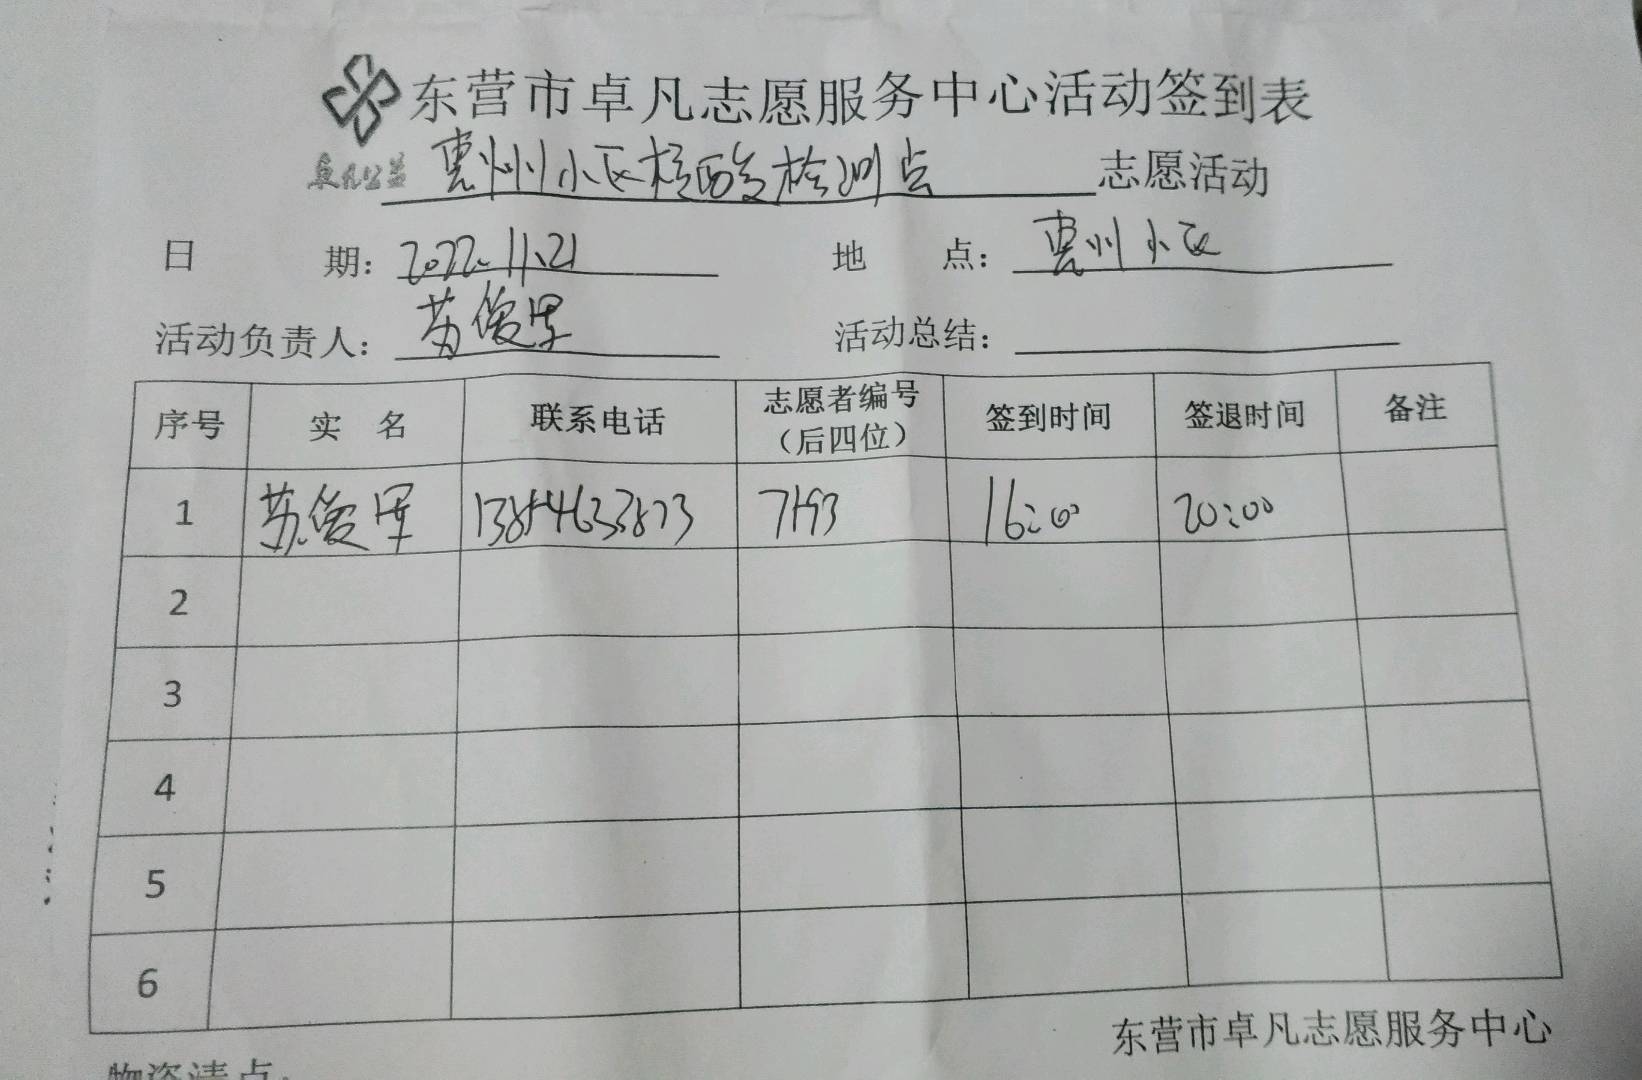 东营市卓凡志愿服务中心活动签到表
卓凡公益 惠州小区核酸检测点 志愿活动
日 期: 2022.11.21 地 点: 惠州小区
活动负责人: 苏俊军 活动总结:
序号 实 名 联系电话 志愿者编号（后四位） 签到时间 签退时间 备注
1 苏俊军 7193 16:00 20:00
2
3
4
5
6
东营市卓凡志愿服务中心
物资清点: